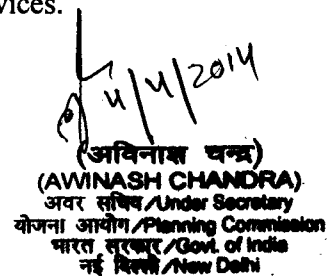 vices.
4/4/2014
(अविनाश चन्द्र)
(AWINASH CHANDRA)
अवर सचिव/Under Secretary
योजना आयोग/Planning Commission
भारत सरकार/Govt. of India
नई दिल्ली/New Delhi